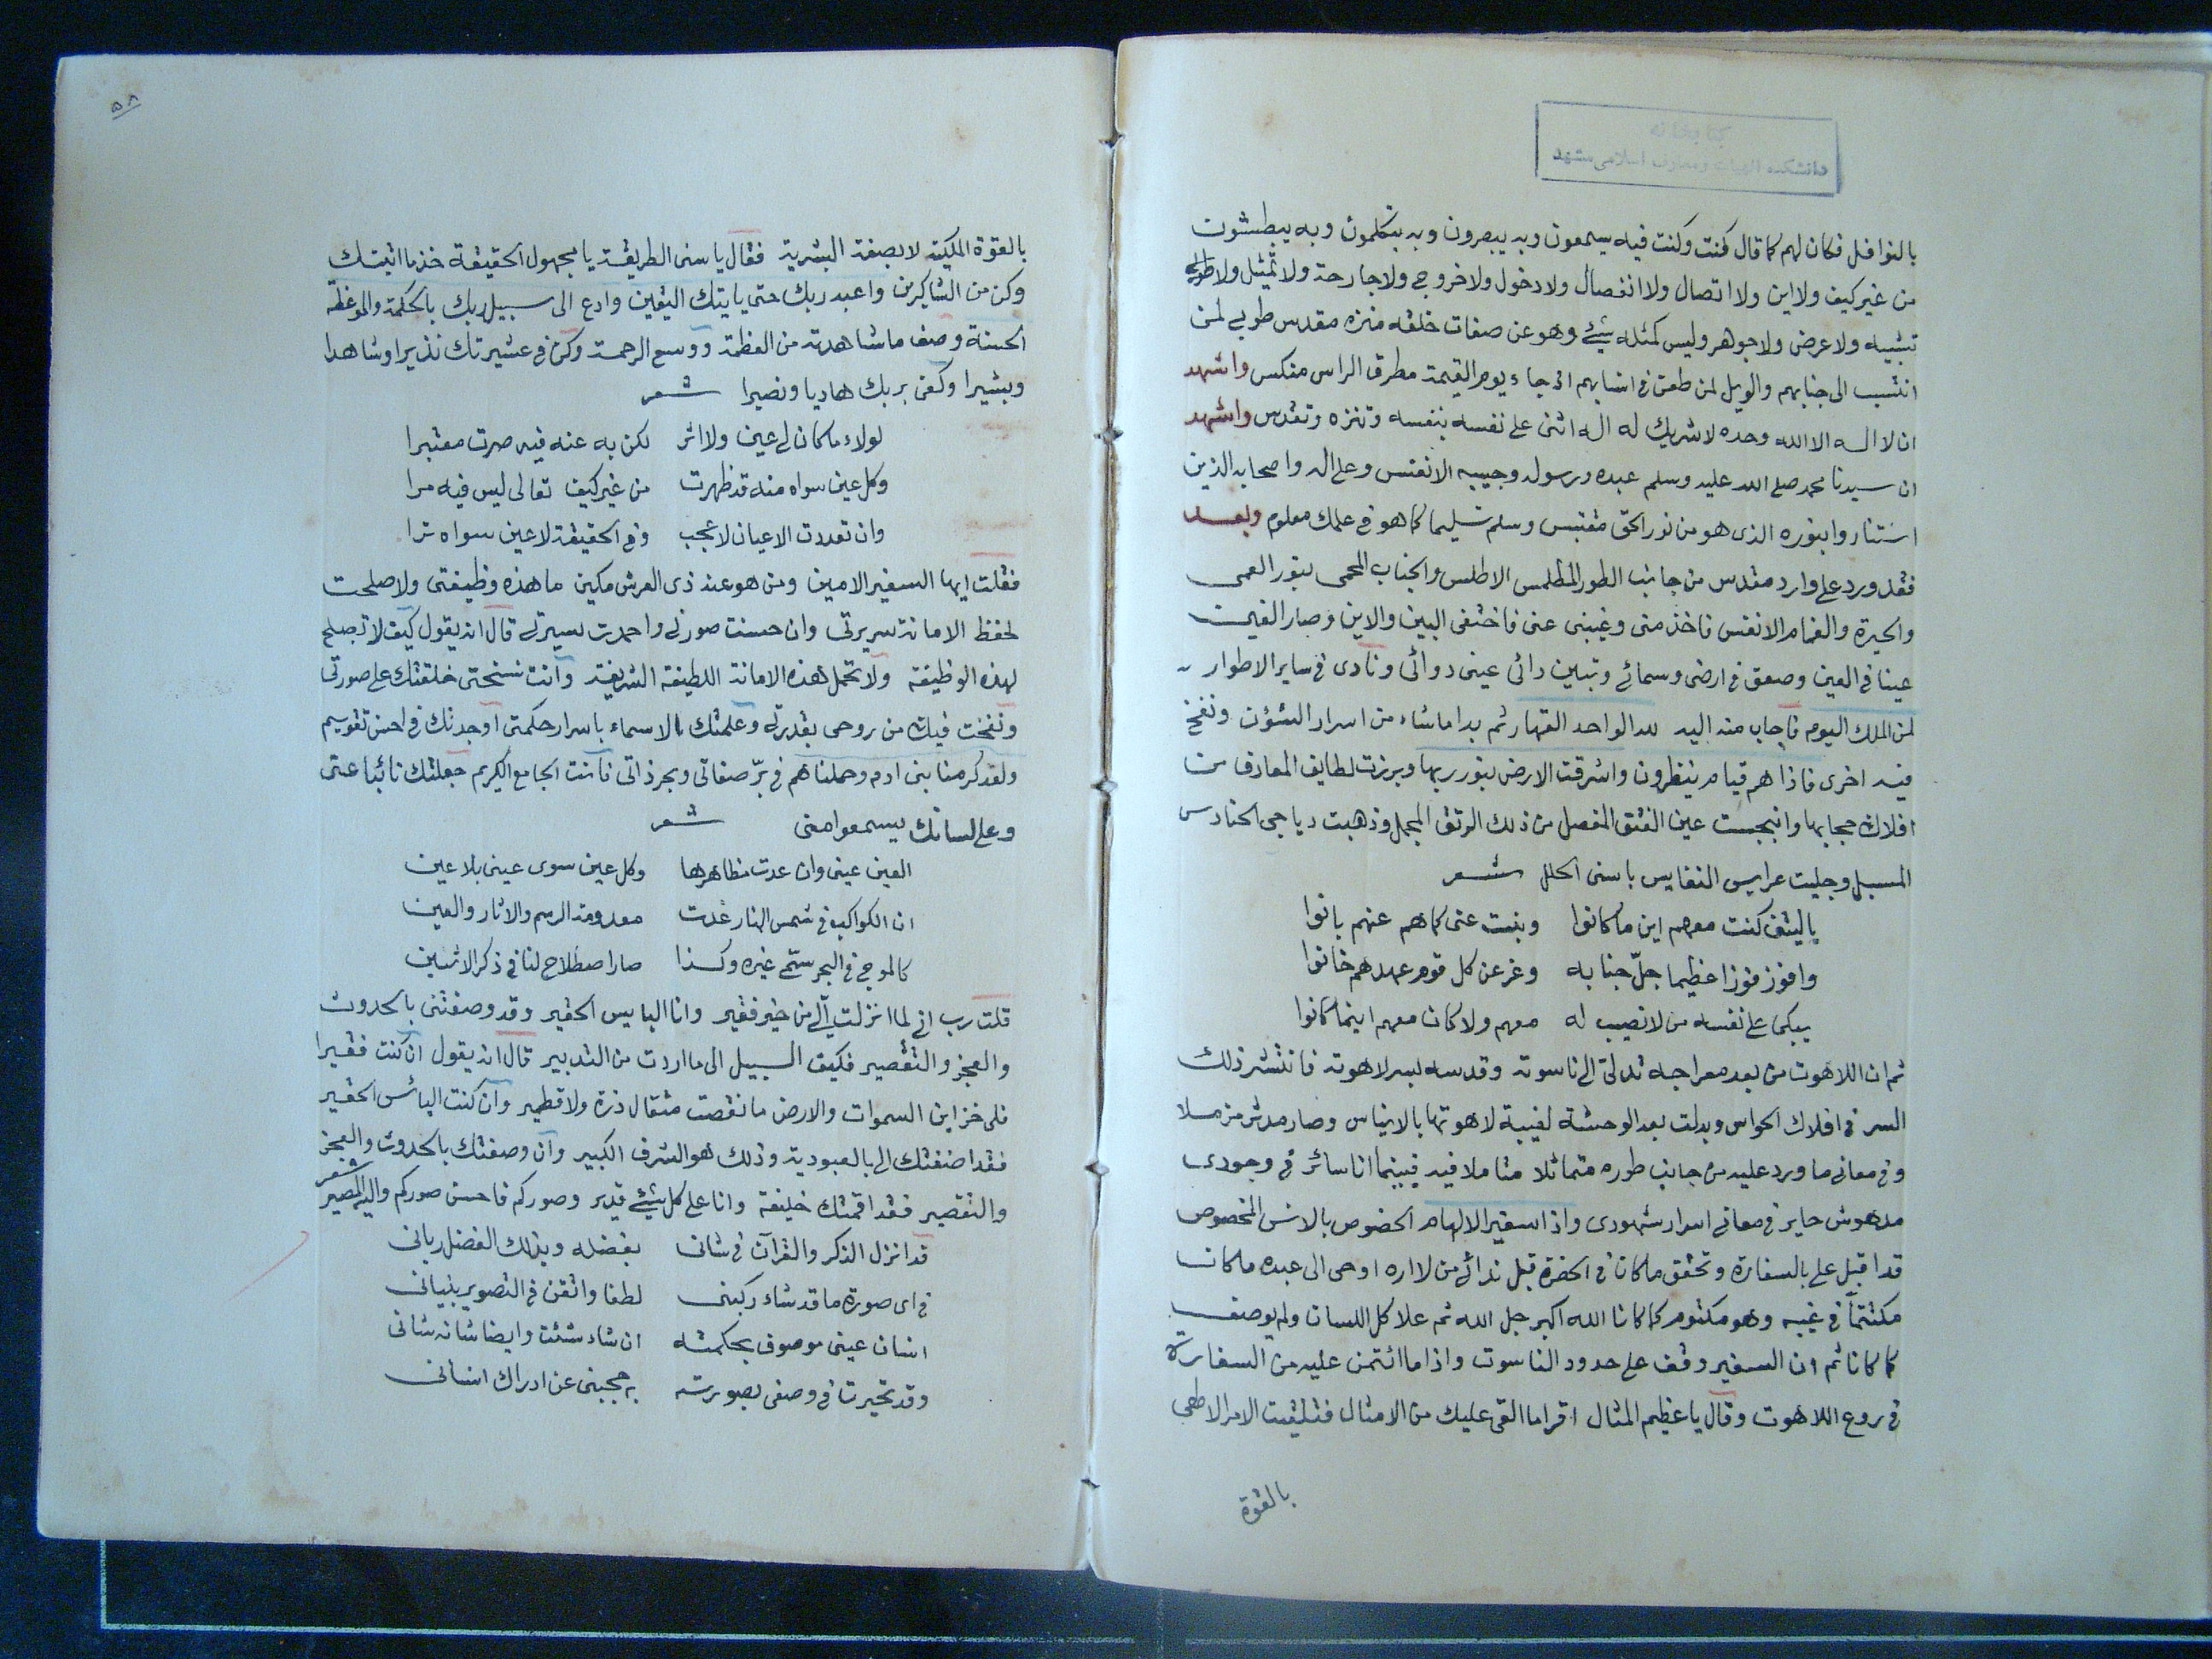 كتابخانه
دانشكده الهيات ومعارف اسلامى مشهد
بالنوافل فكان لهم كما قال كنت وكنت فيه يسمعون وبه يبصرون وبه يتكلمون وبه يبطشون
من غير كيف ولا اين ولا اتصال ولا انفصال ولا دخول ولا خروج ولا جارحة ولا تمثيل ولا
تشبيه ولا عرض ولا جوهر وليس كمثله شئ وهو عن صفات خلقه منزه مقدس طوبى لمن
انتسب الى جنابهم والويل لمن طعن فى انسابهم اذ جاء يوم القيمة مطرق الراس منكس واشهد
ان لا اله الا الله وحده لا شريك له اله اثنى على نفسه بنفسه وتنزه وتقدس واشهد
ان سيدنا محمد صلى الله عليه وسلم عبده ورسوله وحبيبه الانفس وعلى اله واصحابه الذين
استناروا بنوره الذى هو من نور الحق مقتبس وسلم تسليما كما هو فى علمك معلوم وبعد
فقد ورد على وارد مقدس من جانب الطور المطلمس الاطلس والجناب المحمى بنور العمى
والحيرة والغمام الانفس فاخذ منى وغيبنى عنى فاختفى البين والاين وصار الغيب
عينا فى العين وصعق فى ارضى وسمائى وتبين دائى عينى دوائى ونادى فى ساير الاطوار
لمن الملك اليوم فاجاب منه اليه لله الواحد القهار ثم بدا ما شاء من اسرار الشؤن ونفخ
فيه اخرى فاذا هم قيام ينظرون واشرقت الارض بنور ربها وبرزت لطايف المعارف من
افلاك حجابها وانبجست عين الفتق المفصل من ذلك الرتق المجمل وذهبت دياجى الحنادس
المسبل وجليت عرايس النفايس باسنى الحلل شعر
ياليتنى كنت معهم اين ما كانوا وبنت عنى كما هم عنهم بانوا
وافوز فوزا عظيما جلّ جنابه وغر عن كل قوم عهدهم خانوا
يبكى على نفسه من لا نصيب له معهم ولا كان معهم اينما كانوا
ثم ان اللاهوت من بعد معراجه تدلى الى ناسوته وقدسه بسر لاهوته فانتشر ذلك
السر فى افلاك الحواس وبدلت بعد الوحشة لغيبة لاهوتها بالايناس وصار مدثر مزملا
وفى معانى ما ورد عليه من جانب طوره متماثلا متاملا فيه فبينما انا سائر فى وجودى
مدهوش حاير فى معانى اسرار شهودى واذا سفير الالهام الخصوص بالانس المخصوص
قد اقبل على بالسفارة وتحقق ما كان فى الحضرة قبل ندائى من لااره اوحى الى عبده ما كان
مكتتماً فى غيبه وهو مكتوم كما كانا الله اكبر جل الله ثم علا كل اللسان ولم يوصف
كما كانا ثم ان السفير وقف على حدود الناسوت واذا ما ائتمن عليه من السفارة
فى روع اللاهوت وقال يا عظيم المثال اقرا ما القى عليك من الامثال فتلقيت الامر الالهى
بالقوة
٥٨
بالقوة الملكية لا بصفة البشرية فقال يا سنى الطريقة يا مجهول الحقيقة خذ ما اتيتك
وكن من الشاكرين واعبد ربك حتى ياتيك اليقين وادع الى سبيل ربك بالحكمة والموعظة
الحسنة وصف ما شاهدته من العظمة ووسع الرحمة وكن فى عشيرتك نذيرا وشاهدا
وبشيرا وكفى بربك هاديا ونصيرا شعر
لولاء ما كان لى عين ولا اثر لكن به عنه فيه صرت معتبرا
وكل عين سواه منه قد ظهرت من غير كيف تعالى ليس فيه مرا
وان تعددت الاعيان لا عجب وفى الحقيقة لا عين سواه ترا
فقلت ايها السفير الامين ومن هو عند ذى العرش مكين ما هذه وظيفتى ولا صلحت
لحفظ الامانة سريرتى وان حسنت صورتى واحمدت سيرتى قال انه يقول كيف لا تصلح
لهذه الوظيفة ولا تحمل هذه الامانة اللطيفة الشريفة وانت نسختى خلقتك على صورتى
ونفخت فيك من روحى بقدرتى وعلمتك الاسماء باسرار حكمتى اوجدتك فى احسن تقويم
ولقد كرمنا بنى ادم وحملناهم فى برّ صفاتى وبحر ذاتى فانت الجامع الكريم جعلتك نائبا عنى
وعلى لسانك يسمعوا منى شعر
العين عينى وان عدت مظاهرها وكل عين سوى عينى بلا عين
ان الكواكب فى شمس النهار غدت معدومة الرسم والاثار والعين
كالموج فى البحر سمّى غيره وكذا صار اصطلاح لنا فى ذكر الاثنين
قلت رب انى لما انزلت الّى من خير فقير وانا البايس الحقير وقد وصفتنى بالحدوث
والعجز والتقصير فكيف السبيل الى ما اردت من التدبير قال انه يقول ان كنت فقيرا
فلى خزاين السموات والارض ما نقصت مثقال ذرة ولا قطمير وان كنت البائس الحقير
فقد اضفتك الى بالعبودية وذلك هو الشرف الكبير وان وصفتك بالحدوث والعجز
والتقصير فقد اقمتك خليفة وانا على كل شئ قدير وصوركم فاحسن صوركم واليه المصير شعر
قد انزل الذكر والقرآن فى شانى بفضله وبذلك الفضل ربانى
فى اى صورة ما قد شاء ركبنى لطفا واتقن فى التصوير بنيانى
انسان عينى موصوف بحكمته ان شاء شئت وايضا شانه شانى
وقد تحيرت فى وصفى بصورته به حجبنى عن ادراك انسانى